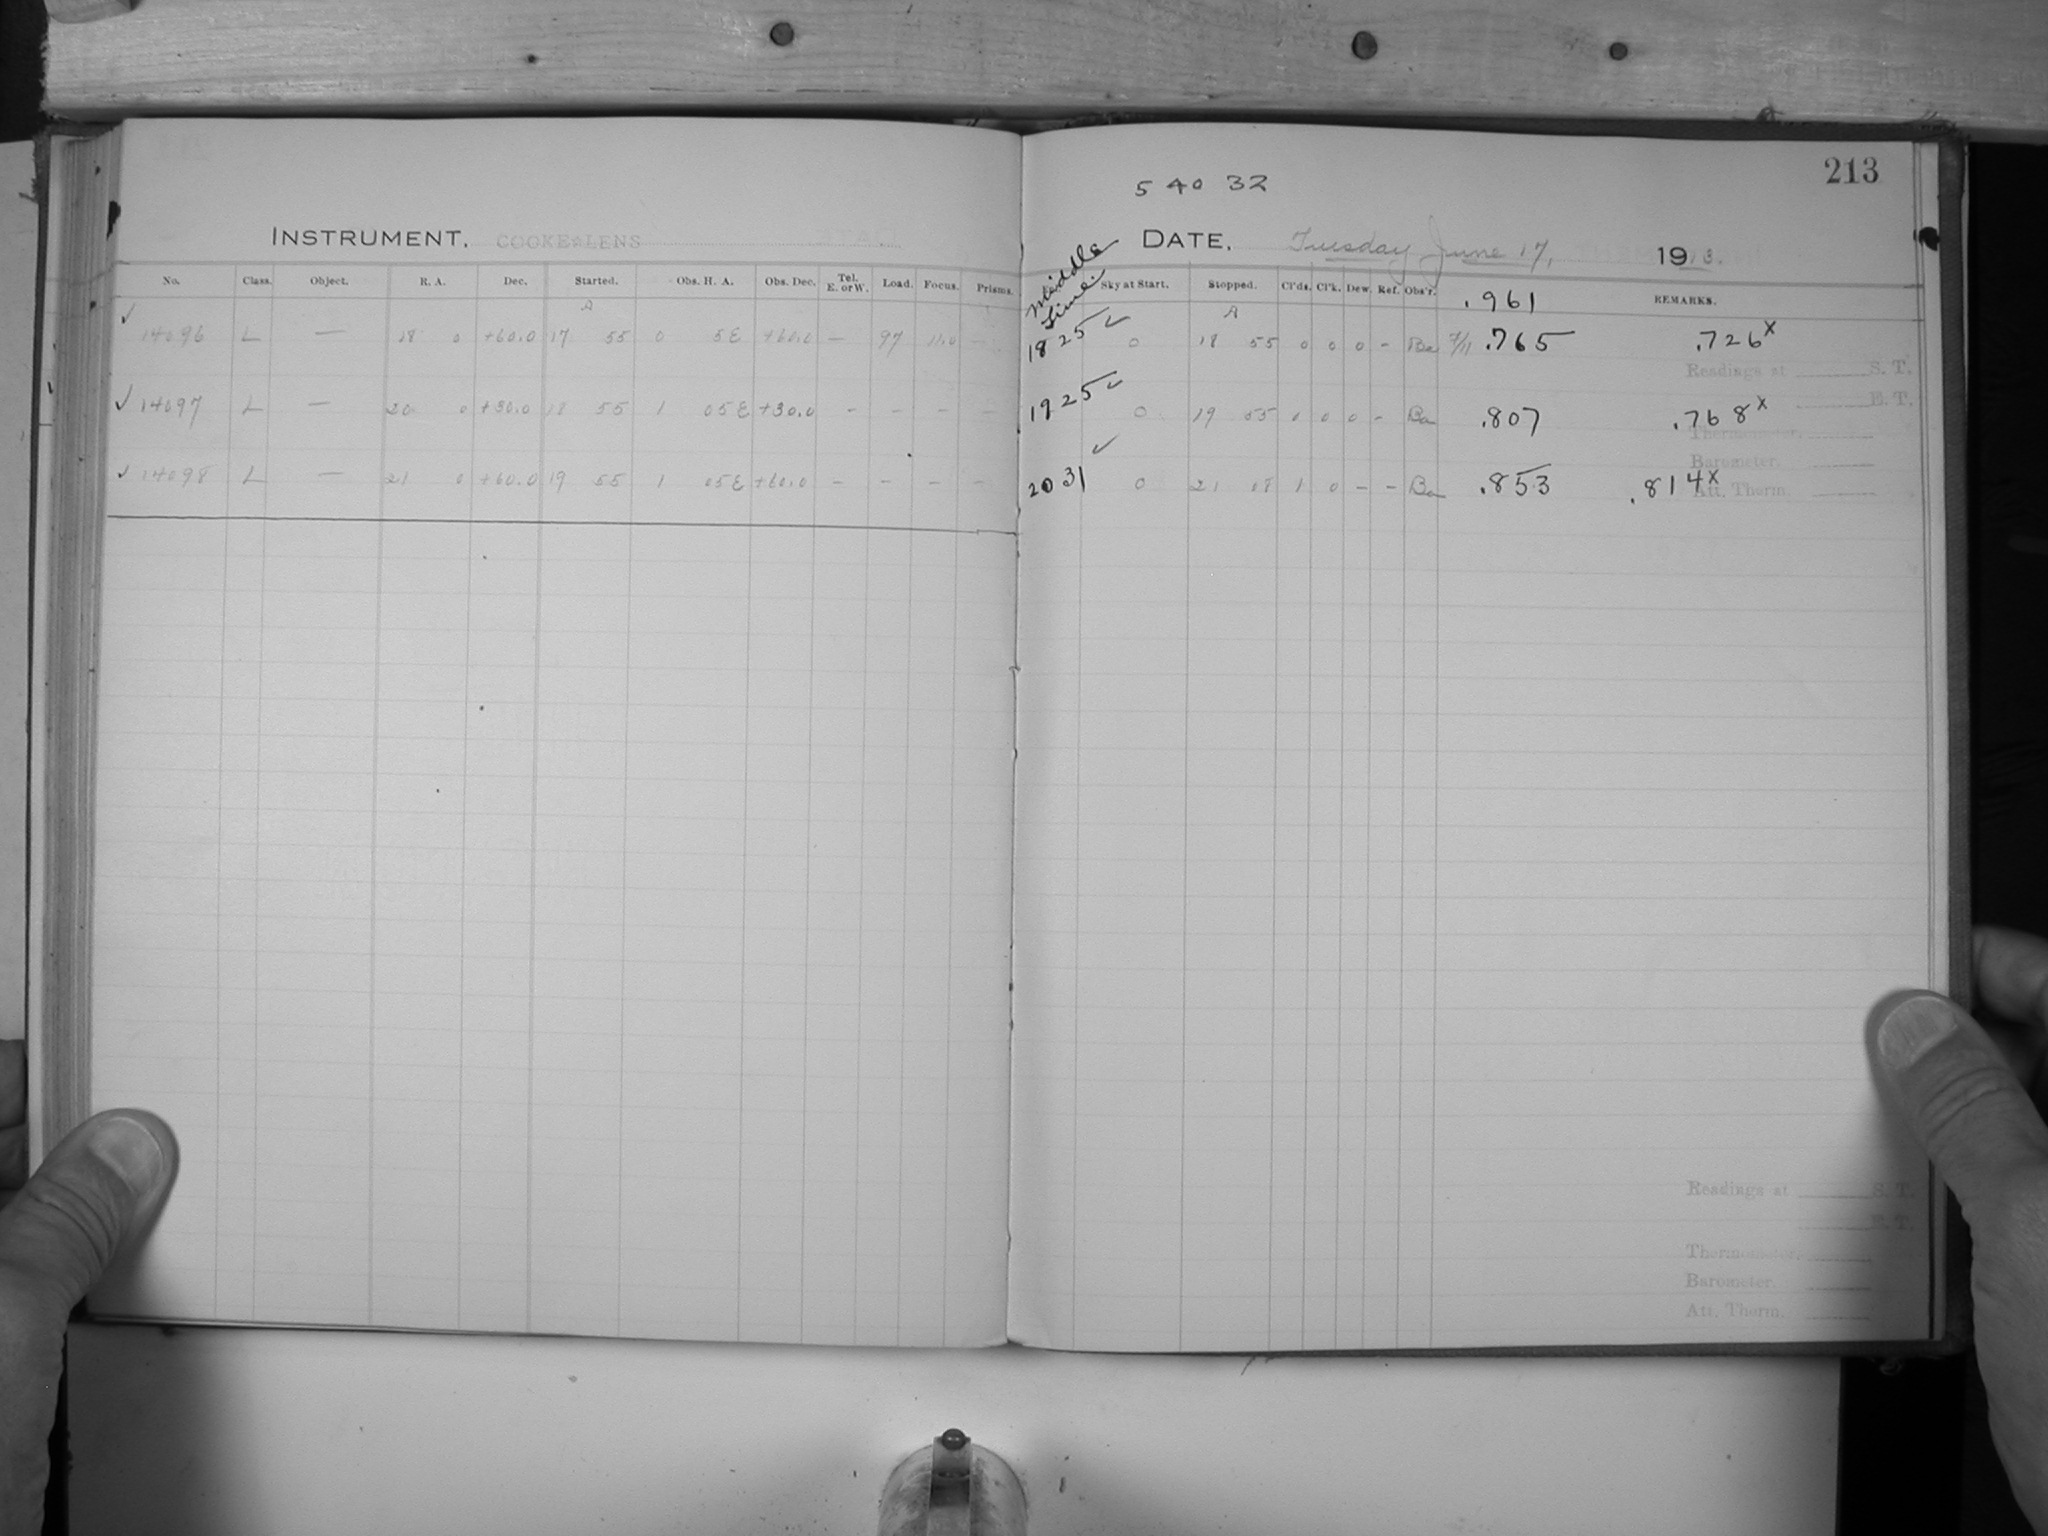 213
5 40 32
INSTRUMENT. COOKE LENS
Middle Time.
DATE. Tuesday June 17, 1913.
No. Class. Object. R. A. Dec. Started. Obs. H. A. Obs. Dec. Tel. E. or W. Load. Focus. Prisms. Sky at Start. Stopped. Cl'ds. Cl'k. Dew. Ref. Obs'r. .961 REMARKS.
A A
✓ 14096 L — 18 0 +60.0 17 55 0 5E +60.0 — 97 11.0 - 18 25 ✓ 0 18 55 0 0 0 - Ba 7/11 .765 .726x
Readings at S. T.
✓ 14097 L — 20 0 +30.0 18 55 1 05E +30.0 - - - - 19 25 ✓ 0 19 55 0 0 0 - Ba .807 .768x
E. T.
Thermometer.
Barometer.
✓ 14098 L — 21 0 +60.0 19 55 1 05E +60.0 - - - - 20 31 ✓ 0 21 08 1 0 - - Ba .853 .814x
Att. Therm.
Readings at S. T.
E. T.
Thermometer.
Barometer.
Att. Therm.